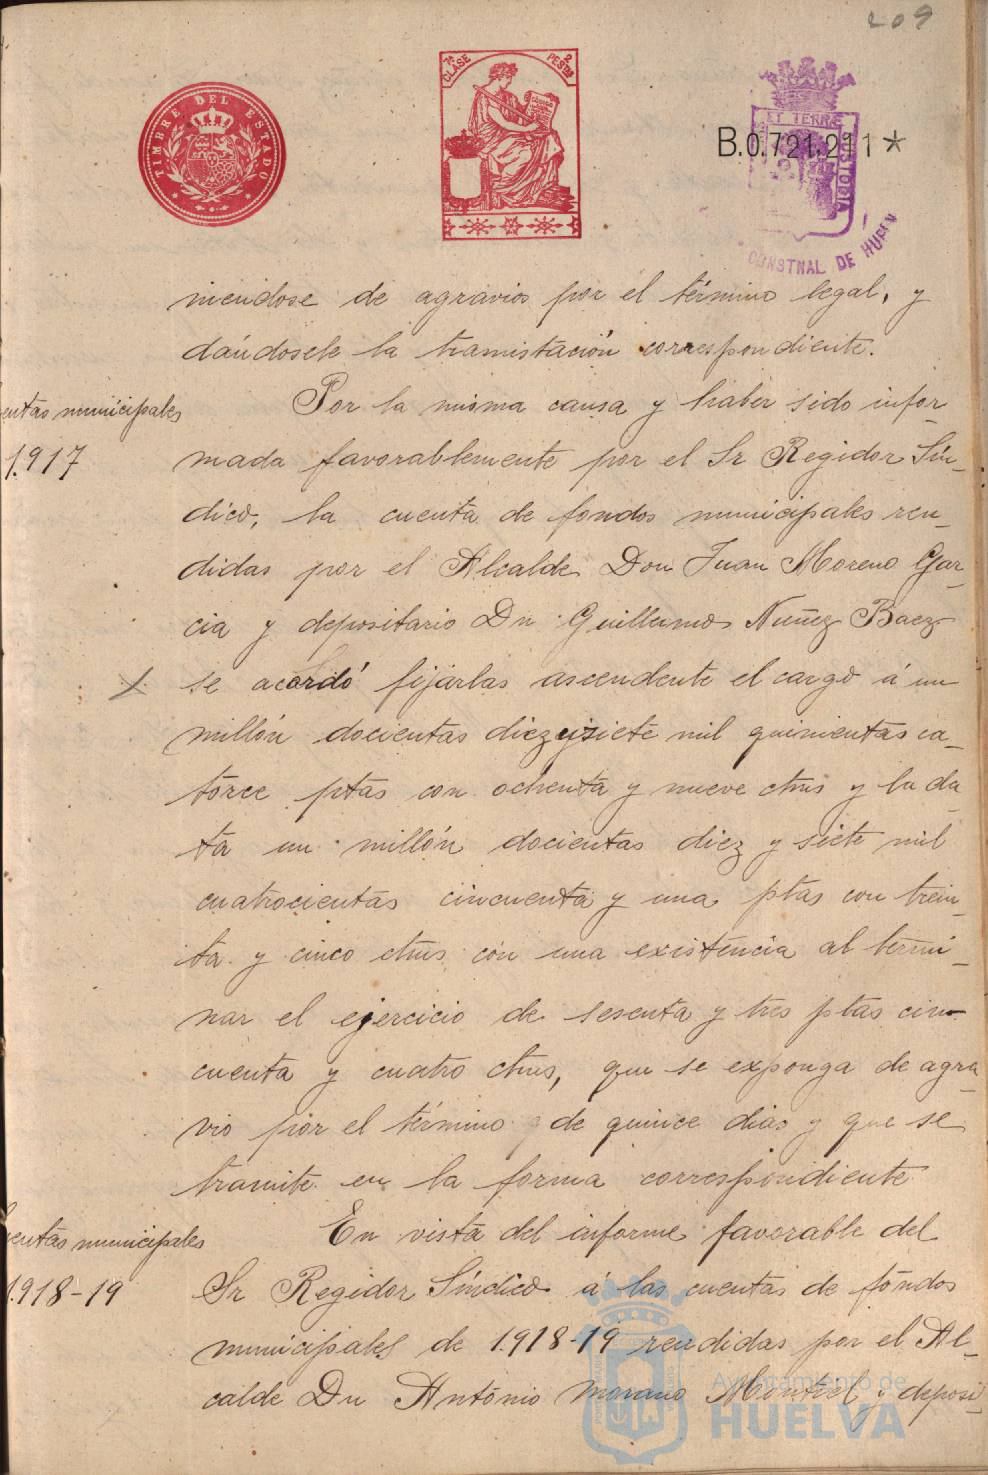 209
TIMBRE DEL ESTADO
7ª CLASE
2 PESTAS
B.0.721.211*
ET TERRÆ
CUSTODIA
CONSTNAL DE HUELV
niendose de agravios por el término legal, y
dándosele la tramistación correspondiente.
entas municipales
1.917
Por la misma causa y haber sido infor-
mada favorablemente por el Sr Regidor Sín-
dico, la cuenta de fondos municipales ren-
didas por el Alcalde Don Juan Moreno Gar-
cia y depositario Dn Guillermo Nuñez Baez
se acordó fijarlas ascendente el cargo á un
millón docientas diez y siete mil quinientas ca-
torce ptas con ochenta y nueve ctms y la da-
ta un millón docientas diez y siete mil
cuatrocientas cincuenta y una ptas con trein-
ta y cinco ctms con una existéncia al termi-
nar el ejercicio de sesenta y tres ptas cin-
cuenta y cuatro ctms, que se exponga de agra-
vio por el término de quince dias y que se
tramite en la forma correspondiente
entas municipales
1.918-19
En vista del informe favorable del
Sr Regidor Síndico á las cuentas de fondos
municipales de 1.918-19 rendidas por el Al-
calde Dn António Morano Montiel y deposi-
Ayuntamiento de
HUELVA